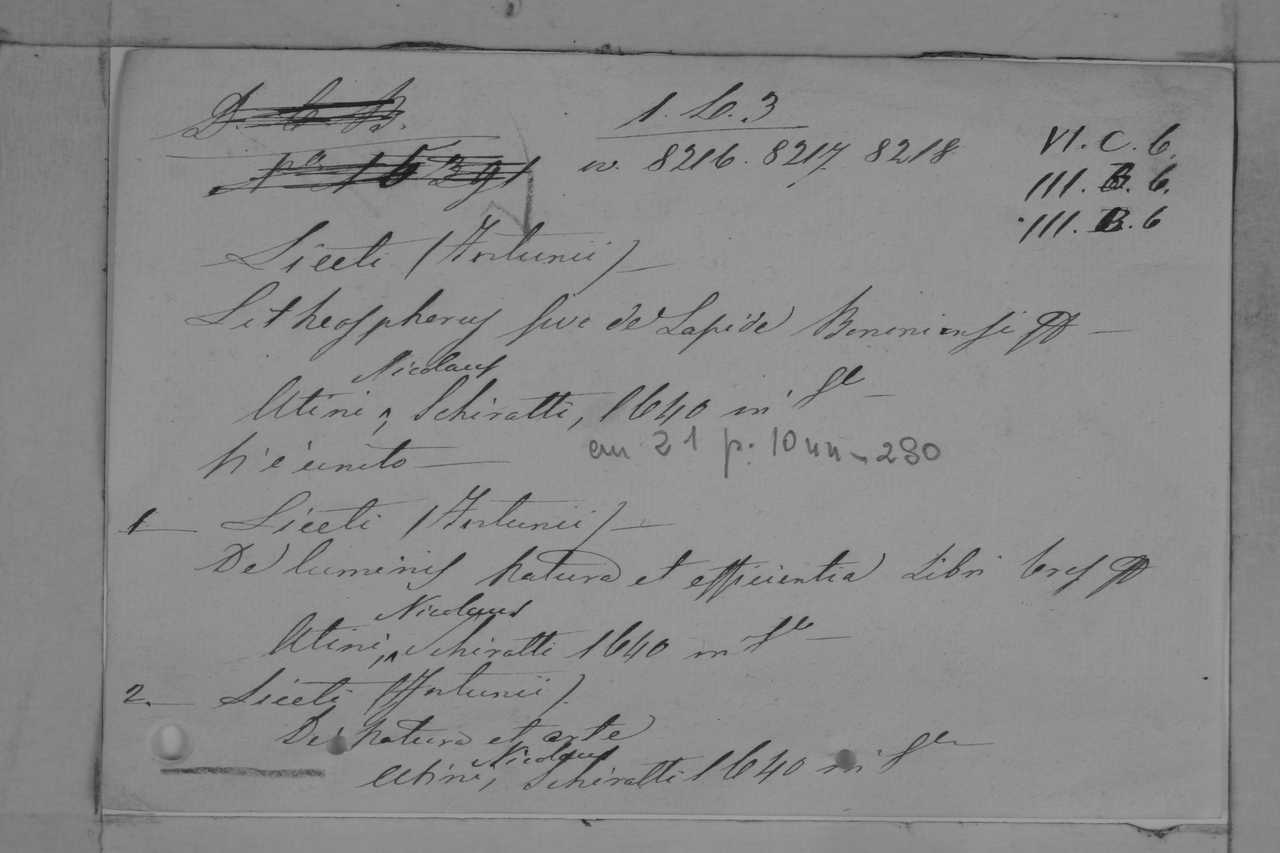 D. C. B.
1. C. 3
n. 8216. 8217. 8218
VI. C. 6.
III. B. 6.
III. B. 6
Liceti (Fortunii) —
Litheosphorus sive de Lapide Bononiensi —
Utini, Nicolaus Schiratti, 1640 in 8º —
cm 21 p. 10 nn - 280
V'è unito —
1 — Liceti (Fortunii) —
De luminis natura et efficientia Libri tres
Utini, Nicolaus Schiratti 1640 in 8º —
2. — Liceti (Fortunii)
De natura et arte
Utini, Nicolaus Schiratti 1640 in 8º —